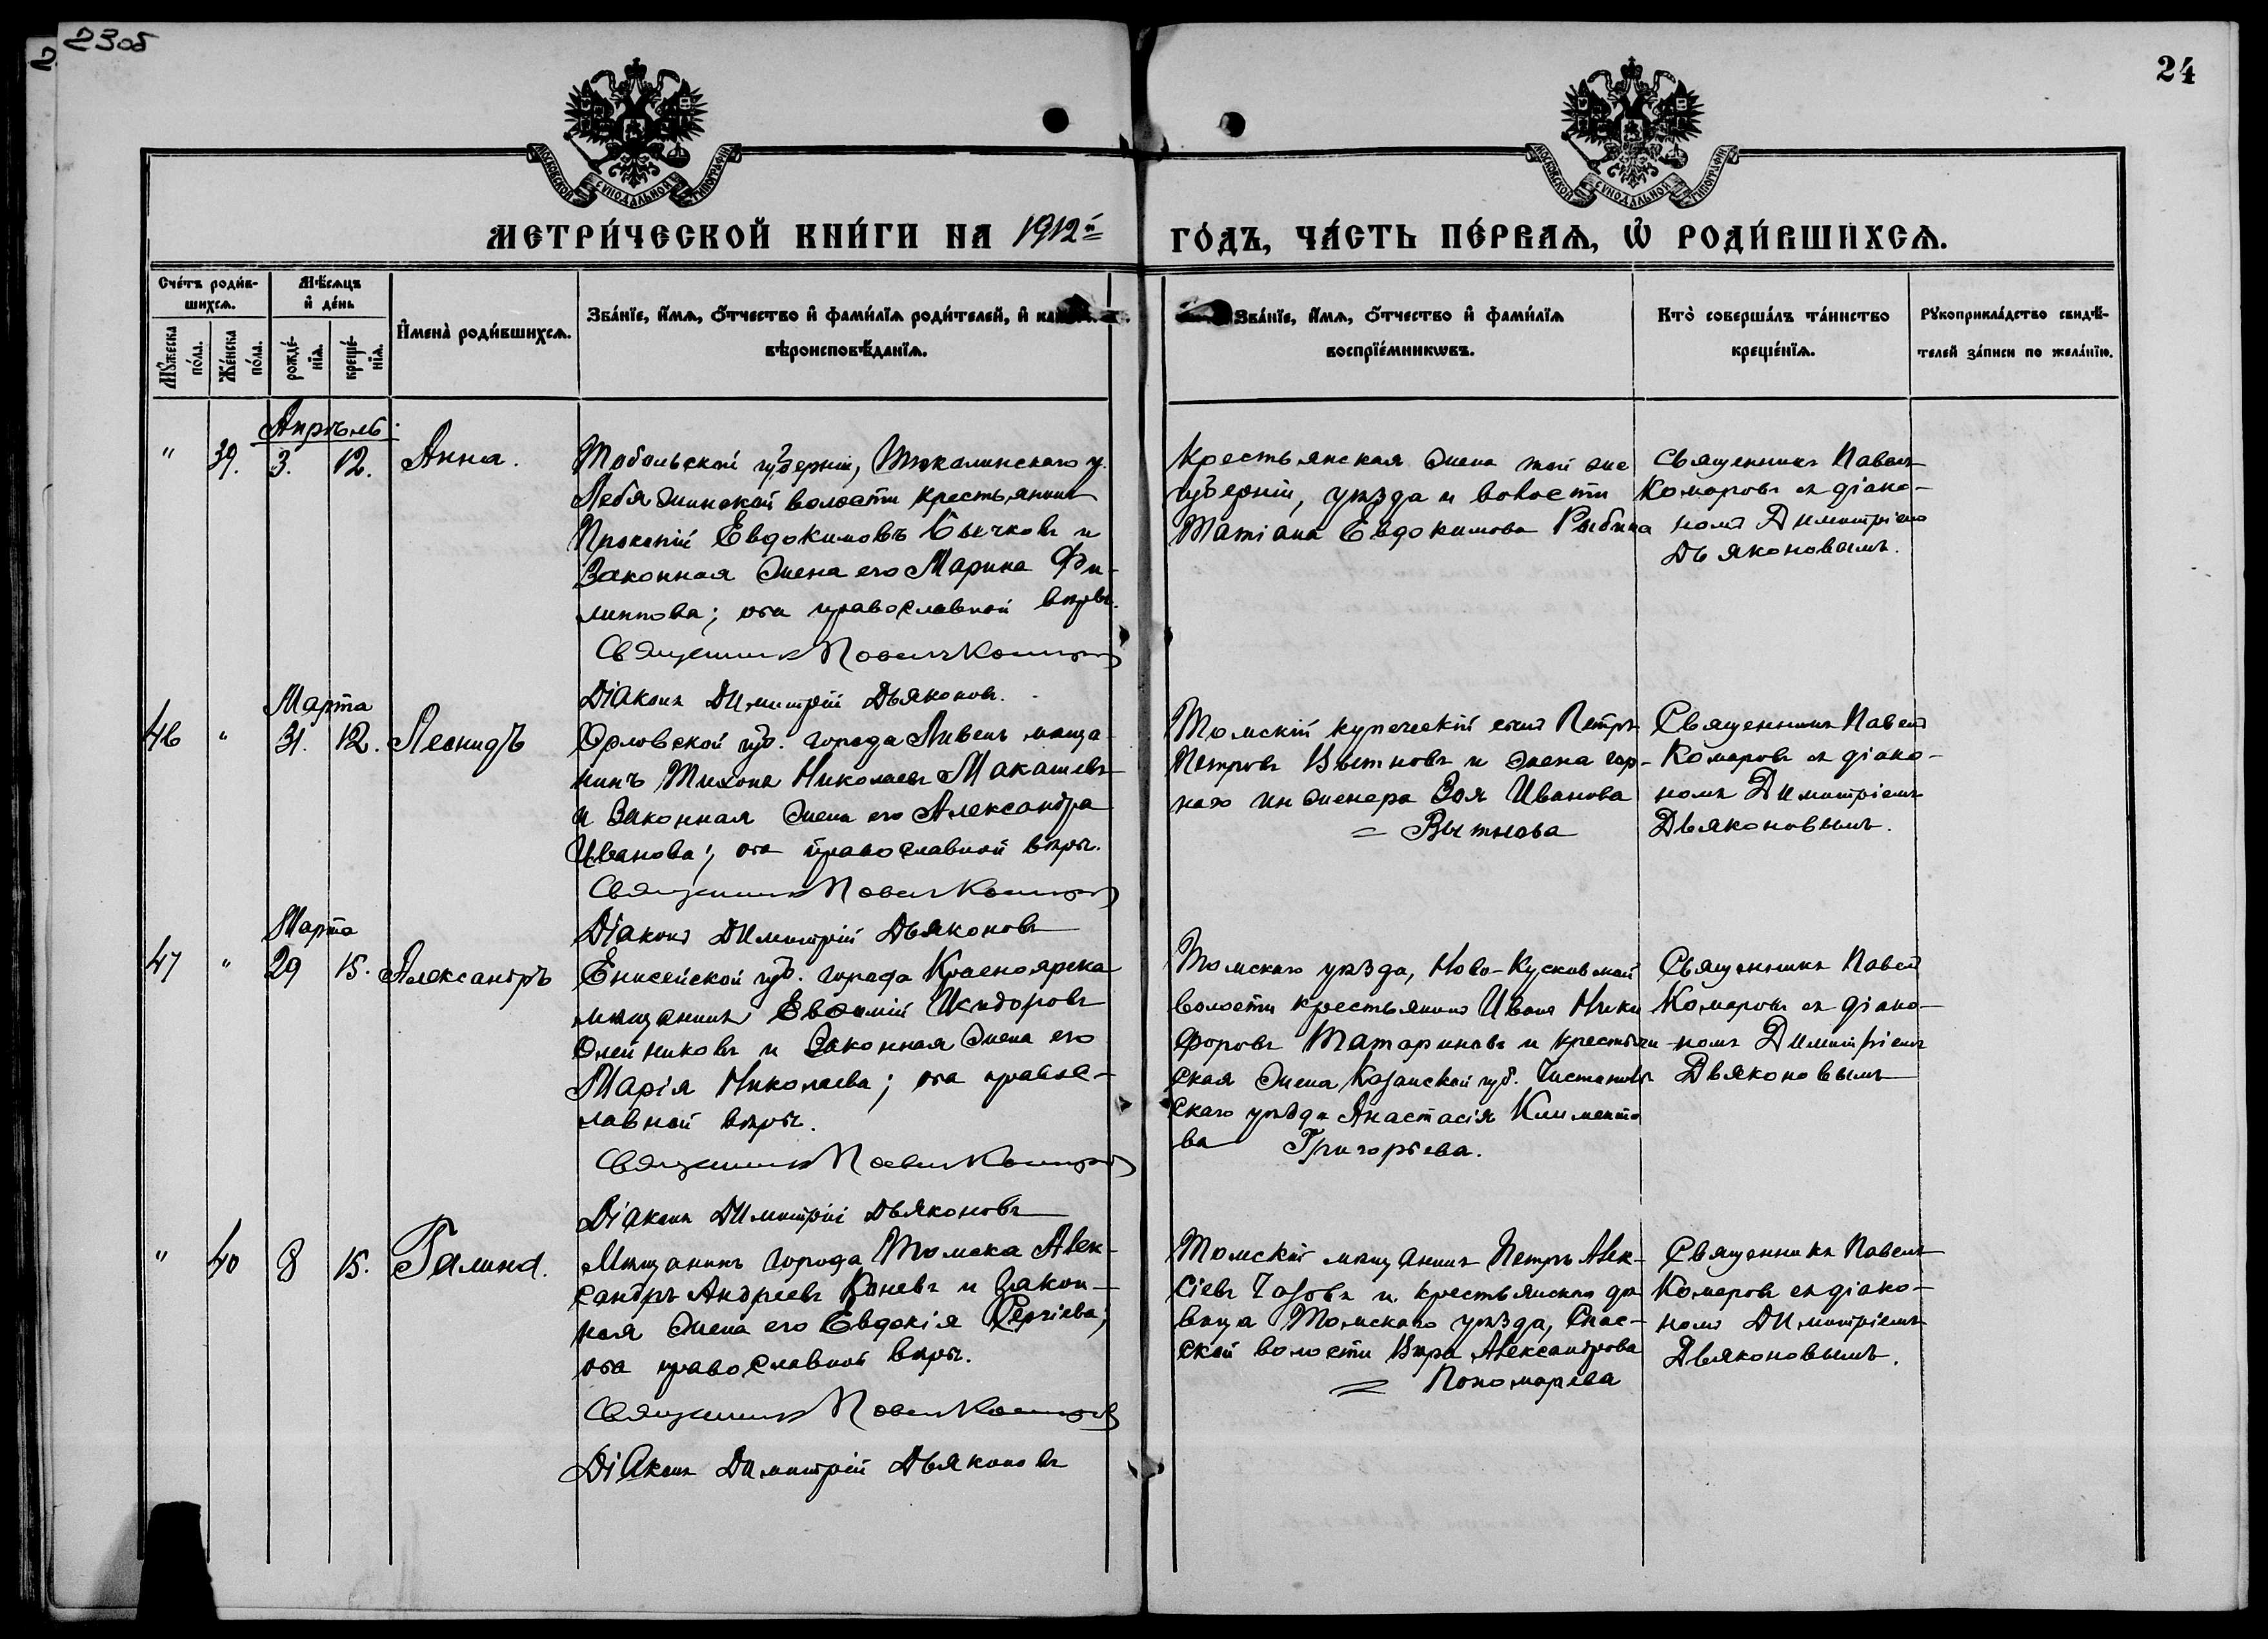 23об
24
МОСКОВСКОЙ СѴНОДАЛЬНОЙ ТИПОГРАФІИ
МОСКОВСКОЙ СѴНОДАЛЬНОЙ ТИПОГРАФІИ
МЕТРИ́ЧЕСКОЙ КНИ́ГИ НА 1912й ГО́ДЪ, ЧА́СТЬ ПЕ́РВАѦ, Ѡ҆ РОДИ́ВШИХСѦ.
Сче́тъ роди́в-
шихсѧ.
Мꙋ́жеска
по́ла.
Же́нска
по́ла.
Мѣ́сѧцъ
и҆ де́нь
рожде́-
нїѧ.
креще́-
нїѧ.
И҆мена̀ роди́вшихсѧ.
Зва́нїе, и҆́мѧ, ѻ҆́тчество и҆ фами́лїѧ роди́телей, и҆
вѣроисповѣ́данїѧ.
Зва́нїе, и҆́мѧ, ѻ҆́тчество и҆ фами́лїѧ
воспрїе́мникѡвъ.
Кто̀ соверша́лъ та́инство
креще́нїѧ.
Рꙋкоприкла́дство свидѣ́-
телей за́писи по жела́нїю.
Апрѣль
" 39. 3. 12. Анна.
Тобольской губерніи, Тюкалинскаго у.
Лебяжинской волости крестьянинъ
Прокопій Евдокимовъ Бычковъ и
законная жена его Марина Фи-
липпова; оба православной вѣры.
Священникъ Павелъ Комаровъ
Діаконъ Димитрій Дьяконовъ.
Крестьянская жена той же
губерніи, уѣзда и волости
Татіана Евдокимова Рыбина
Священникъ Павелъ
Комаровъ съ діако-
номъ Димитріемъ
Дьяконовымъ.
Марта
46 " 31. 12. Леонидъ
Орловской губ. города Ливенъ мѣща-
нинъ Тихонъ Николаевъ Макашевъ
и законная жена его Александра
Иванова; оба православной вѣры.
Священникъ Павелъ Комаровъ
Діаконъ Димитрій Дьяконовъ
Томскій купеческій сынъ Петръ
Петровъ Вытновъ и жена гор-
наго инженера Зоя Иванова
= Вытнова
Священникъ Павелъ
Комаровъ съ діако-
номъ Димитріемъ
Дьяконовымъ.
Марта
47 " 29 15. Александръ
Енисейской губ. города Красноярска
мѣщанинъ Евѳимій Исидоровъ
Олейниковъ и законная жена его
Марія Николаева; оба правос-
лавной вѣры.
Священникъ Павелъ Комаровъ
Діаконъ Димитрій Дьяконовъ
Томскаго уѣзда, Ново-Кусковской
волости крестьянинъ Иванъ Ники
форовъ Татариновъ и крестьян-
ская жена Казанской губ. Чистополь
скаго уѣзда Анастасія Климента
ва Григорьева.
Священникъ Павелъ
Комаровъ съ діако-
номъ Димитріемъ
Дьяконовымъ
" 40 8 15. Галина.
Мѣщанинъ города Томска Алек-
сандръ Андреевъ Коневъ и закон-
ная жена его Евдокія Сергіева;
оба православной вѣры.
Священникъ Павелъ Комаровъ
Діаконъ Димитрій Дьяконовъ
Томскій мѣщанинъ Петръ Алек-
сіевъ Чазовъ и крестьянская дѣ
вица Томскаго уѣзда, Спас-
ской волости Вѣра Александрова
= Пономарева
Священникъ Павелъ
Комаровъ съ діако-
номъ Димитріемъ
Дьяконовымъ.